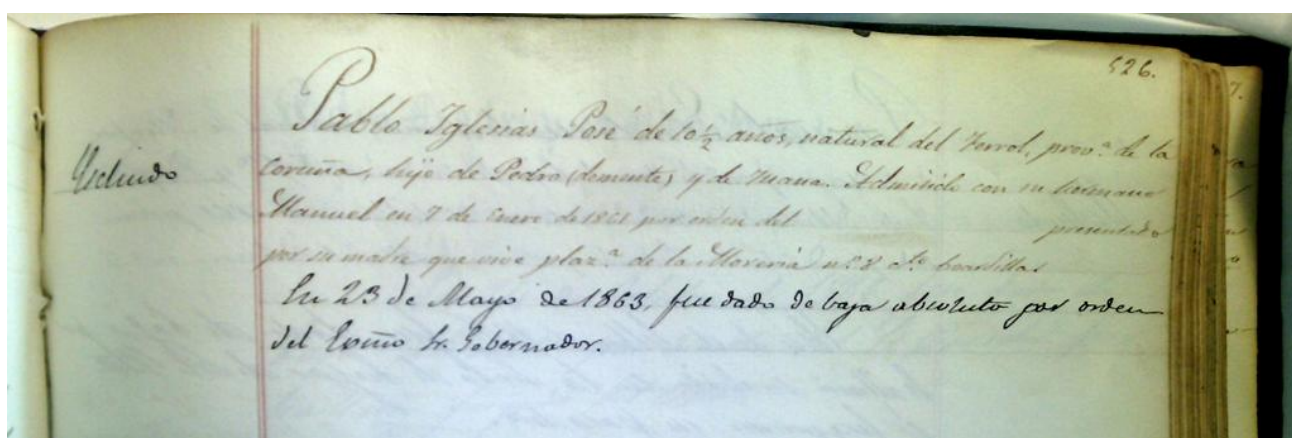 526.
Pablo Iglesias Posé de 10½ años, natural del Ferrol, provª de la
Recluido
Coruña, hijo de Pedro (demente) y de Juana. Admitido con su hermano
Manuel en 7 de Enero de 1861 por orden del presentado
por su madre que vive plazª de la Morería nº 8 cto boardilla
En 23 de Mayo de 1863, fue dado de baja absoluta por orden
del Excmo Sr. Gobernador.